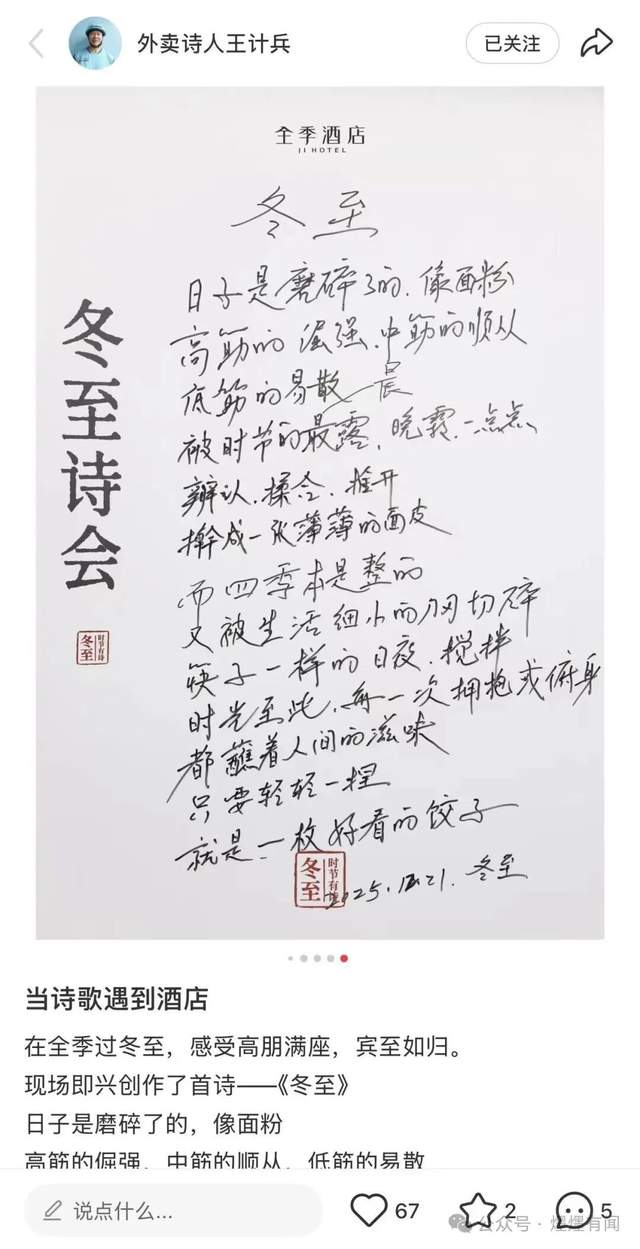 外卖诗人王计兵
已关注
全季酒店
JI HOTEL
冬至
日子是磨碎了的，像面粉
高筋的倔强、中筋的顺从
底筋的易散
晨
被时节的最露，晚霜，一点点
辨认，揉合，推开
擀成一张薄薄的面皮
而四季本是整的
又被生活细小的刀切碎
筷子一样的日夜，搅拌
时光至此，每一次拥抱或俯身
都蘸着人间的滋味
只要轻轻一捏
就是一枚好看的饺子
2025.12.21.冬至
冬至诗会
冬至
时节有诗
冬至
时节有诗
当诗歌遇到酒店
在全季过冬至，感受高朋满座，宾至如归。
现场即兴创作了首诗——《冬至》
日子是磨碎了的，像面粉
高筋的倔强，中筋的顺从，低筋的易散
说点什么...
67
2
5
公众号·煜煜有闻